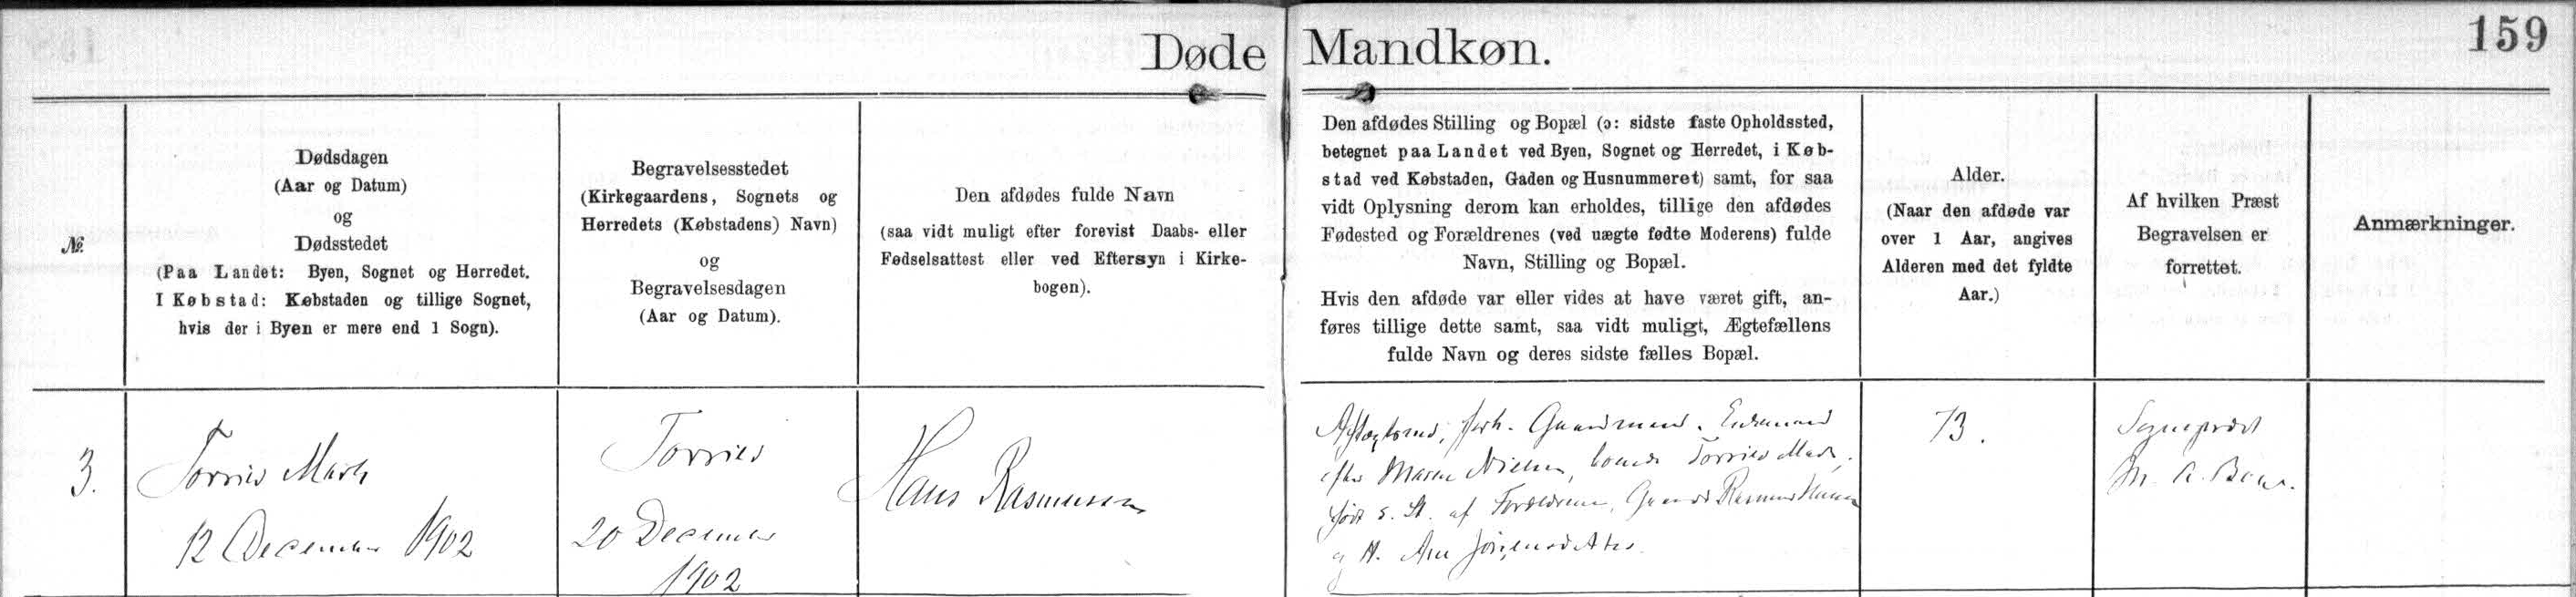 Døde Mandkøn.
159
№.
Dødsdagen
(Aar og Datum)
og
Dødsstedet
(Paa Landet: Byen, Sognet og Herredet.
I Købstad: Købstaden og tillige Sognet,
hvis der i Byen er mere end 1 Sogn).
Begravelsesstedet
(Kirkegaardens, Sognets og
Herredets (Købstadens) Navn)
og
Begravelsesdagen
(Aar og Datum).
Den afdødes fulde Navn
(saa vidt muligt efter forevist Daabs- eller
Fødselsattest eller ved Eftersyn i Kirke-
bogen).
Den afdødes Stilling og Bopæl (ɔ: sidste faste Opholdssted,
betegnet paa Landet ved Byen, Sognet og Herredet, i Køb-
stad ved Købstaden, Gaden og Husnummeret) samt, for saa
vidt Oplysning derom kan erholdes, tillige den afdødes
Fødested og Forældrenes (ved uægte fødte Moderens) fulde
Navn, Stilling og Bopæl.
Hvis den afdøde var eller vides at have været gift, an-
føres tillige dette samt, saa vidt muligt, Ægtefællens
fulde Navn og deres sidste fælles Bopæl.
Alder.
(Naar den afdøde var
over 1 Aar, angives
Alderen med det fyldte
Aar.)
Af hvilken Præst
Begravelsen er
forrettet.
Anmærkninger.
3.
Torrild Mark
12 December 1902
Torrild
20 December
1902
Hans Rasmussen
Aftægtsmd, forh. Gaardmand. Enkemand
efter Maren Nielsen, boende Torrild Mark,
født s. St. af Forældrene, Gaardm Rasmus Hansen
og H. Ane Jørgensdatter.
73.
Sognepræst